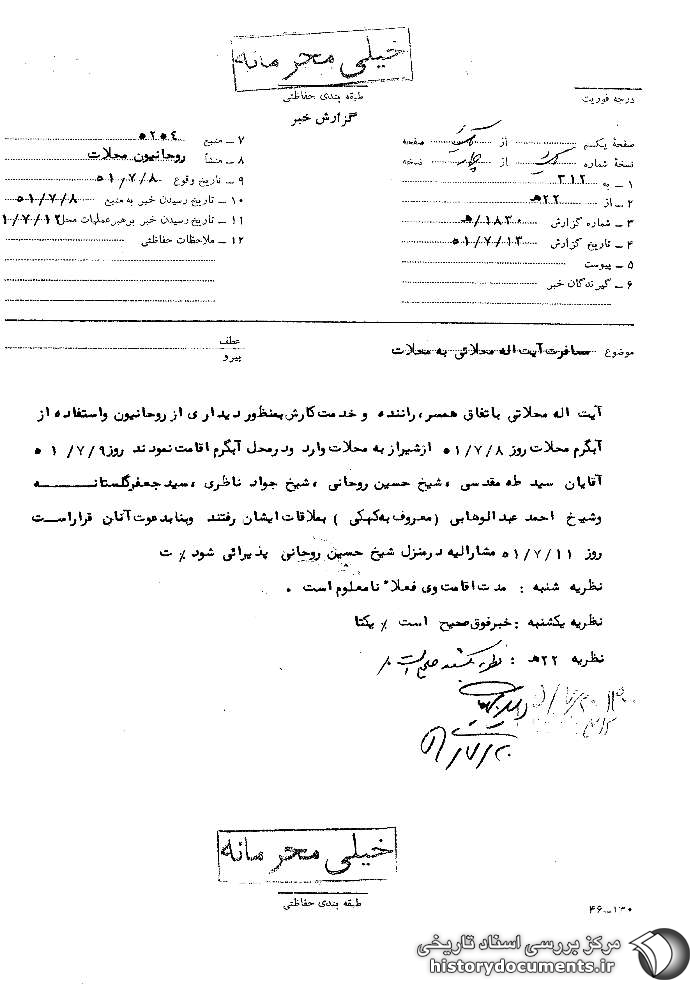 خیلی محرمانه
طبقه بندی حفاظتی
گزارش خبر
درجه فوریت
صفحهٔ یکم از صفحه
نسخهٔ شماره از نسخه
۱ ـ به ۳۱۲
۲ ـ از ۲۲ه‍
۳ ـ شماره گزارش ۱۸۲۰/ه‍
۴ ـ تاریخ گزارش ۵۱/۷/۱۳
۵ ـ پیوست
۶ ـ گیرندگان خبر
۷ ـ منبع ۵۲۵۴
۸ ـ منشأ روحانیون محلات
۹ ـ تاریخ وقوع ۵۱/۷/۸
۱۰ ـ تاریخ رسیدن خبر به منبع ۵۱/۷/۸
۱۱ ـ تاریخ رسیدن خبر برهبر عملیات محل ۱/۷/۱۲
۱۲ ـ ملاحظات حفاظتی
موضوع مسافرت آیت اله محلاتی به محلات
عطف
پیرو
آیت اله محلاتی باتفاق همسر، راننده و خدمتکارش بمنظور دیداری از روحانیون واستفاده از
آبگرم محلات روز ۵۱/۷/۸ ازشیراز به محلات وارد ودرمحل آبگرم اقامت نمودند روز ۵۱/۷/۹
آقایان سید طه مقدسی ، شیخ حسین روحانی ، شیخ جواد ناظری ، سید جعفرگلستانه
وشیخ احمد عبدالوهابی (معروف به کهکی ) بملاقات ایشان رفتند وبنابدعوت آنان قراراست
روز ۵۱/۷/۱۱ مشارالیه درمنزل شیخ حسین روحانی پذیرائی شود ٪ ت
نظریه شنبه : مدت اقامت وی فعلاً نامعلوم است .
نظریه یکشنبه : خبرفوق صحیح است ٪ یکتا
نظریه ۲۲ه‍ : نظریه یکشنبه صحیح است ٪
۵۱/۷/۲۰
خیلی محرمانه
طبقه بندی حفاظتی
۴۶-۱۳۰
مرکز بررسی اسناد تاریخی
historydocuments.ir